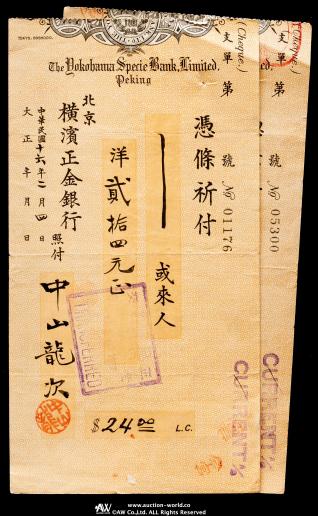 The Yokohama Specie Bank, Limited.
Peking
(Cheque.)
支單第 號
No 01176
憑條祈付
或來人
洋貳拾四元正
北京
橫濱正金銀行 照付
中華民國十六年二月四日
大正 年 月 日
中山龍次
$24.00 L.C.
CURRENT A/C
(Cheque.)
支單第 號
No 05300
CURRENT A/C
www.auction-world.co
©AW Co.,Ltd. ALL Rights Reserved